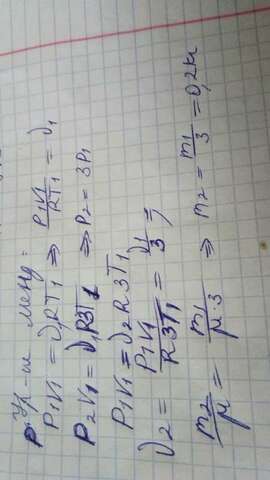 Ур-е менд:
P₁V₁ = ν₁RT₁ ⇒ P₁V₁/RT₁ = ν₁
P₂V₁ = ν₁R3T₁ ⇒ P₂ = 3P₁
P₁V₁ = ν₂R3T₁
ν₂ = P₁V₁/R3T₁ = ν₁/3 ⇒
m₂/μ = m₁/μ·3 ⇒ m₂ = m₁/3 = 0,2кг